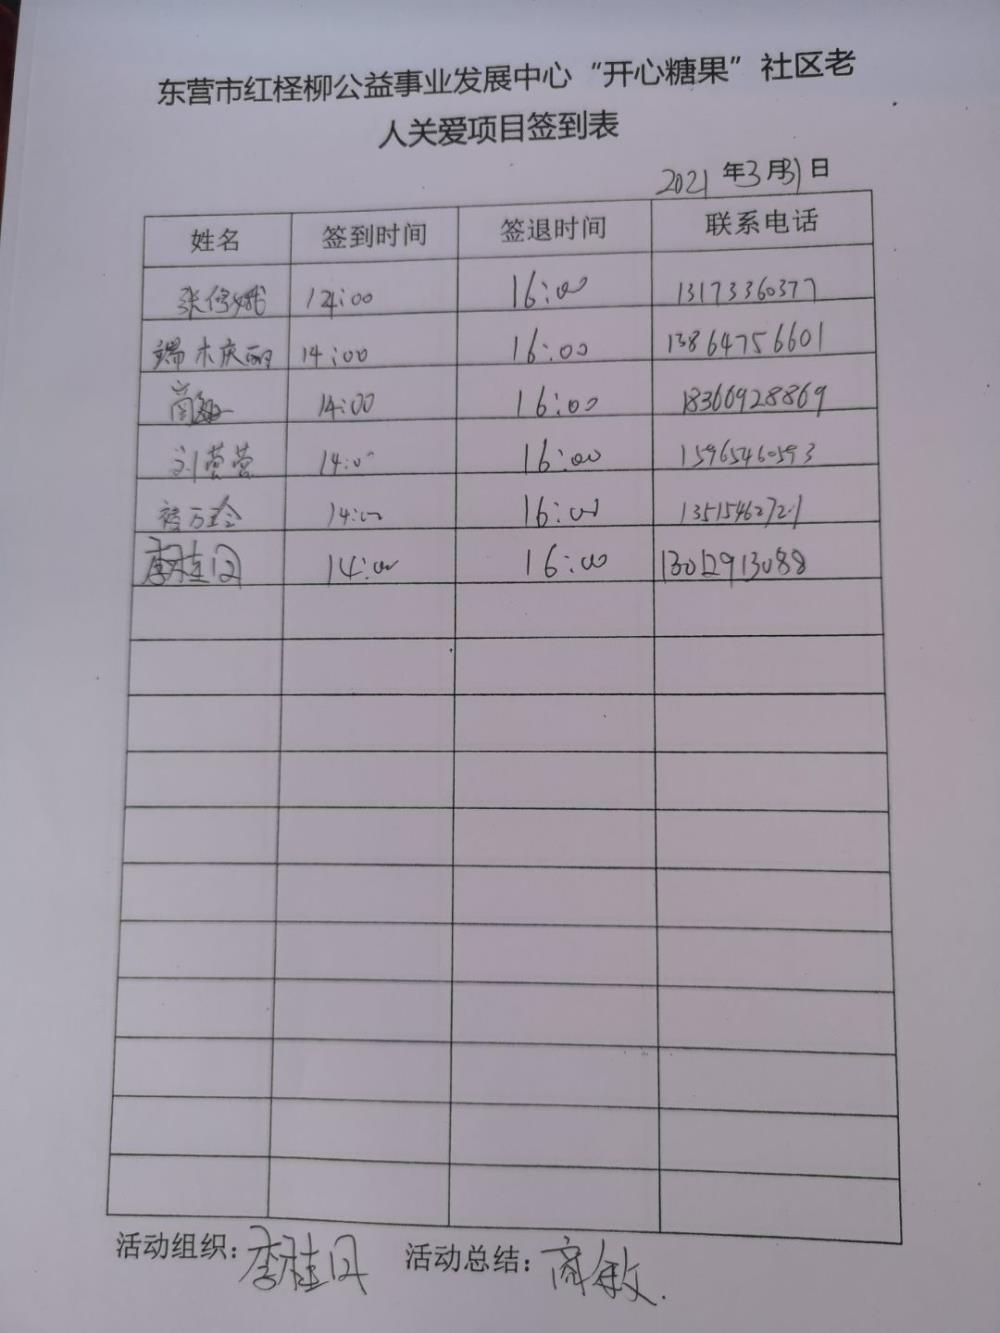 东营市红柽柳公益事业发展中心“开心糖果”社区老
人关爱项目签到表
2021年3月31日
姓名 签到时间 签退时间 联系电话
张修娥 14:00 16:00 13173360377
端木庆丽 14:00 16:00 13864756601
商敏 14:00 16:00 18366928869
刘营营 14:00 16:00 15965460593
14:00 16:00 13515462721
李桂月 14:00 16:00 13012913088
活动组织：李桂月 活动总结：商敏